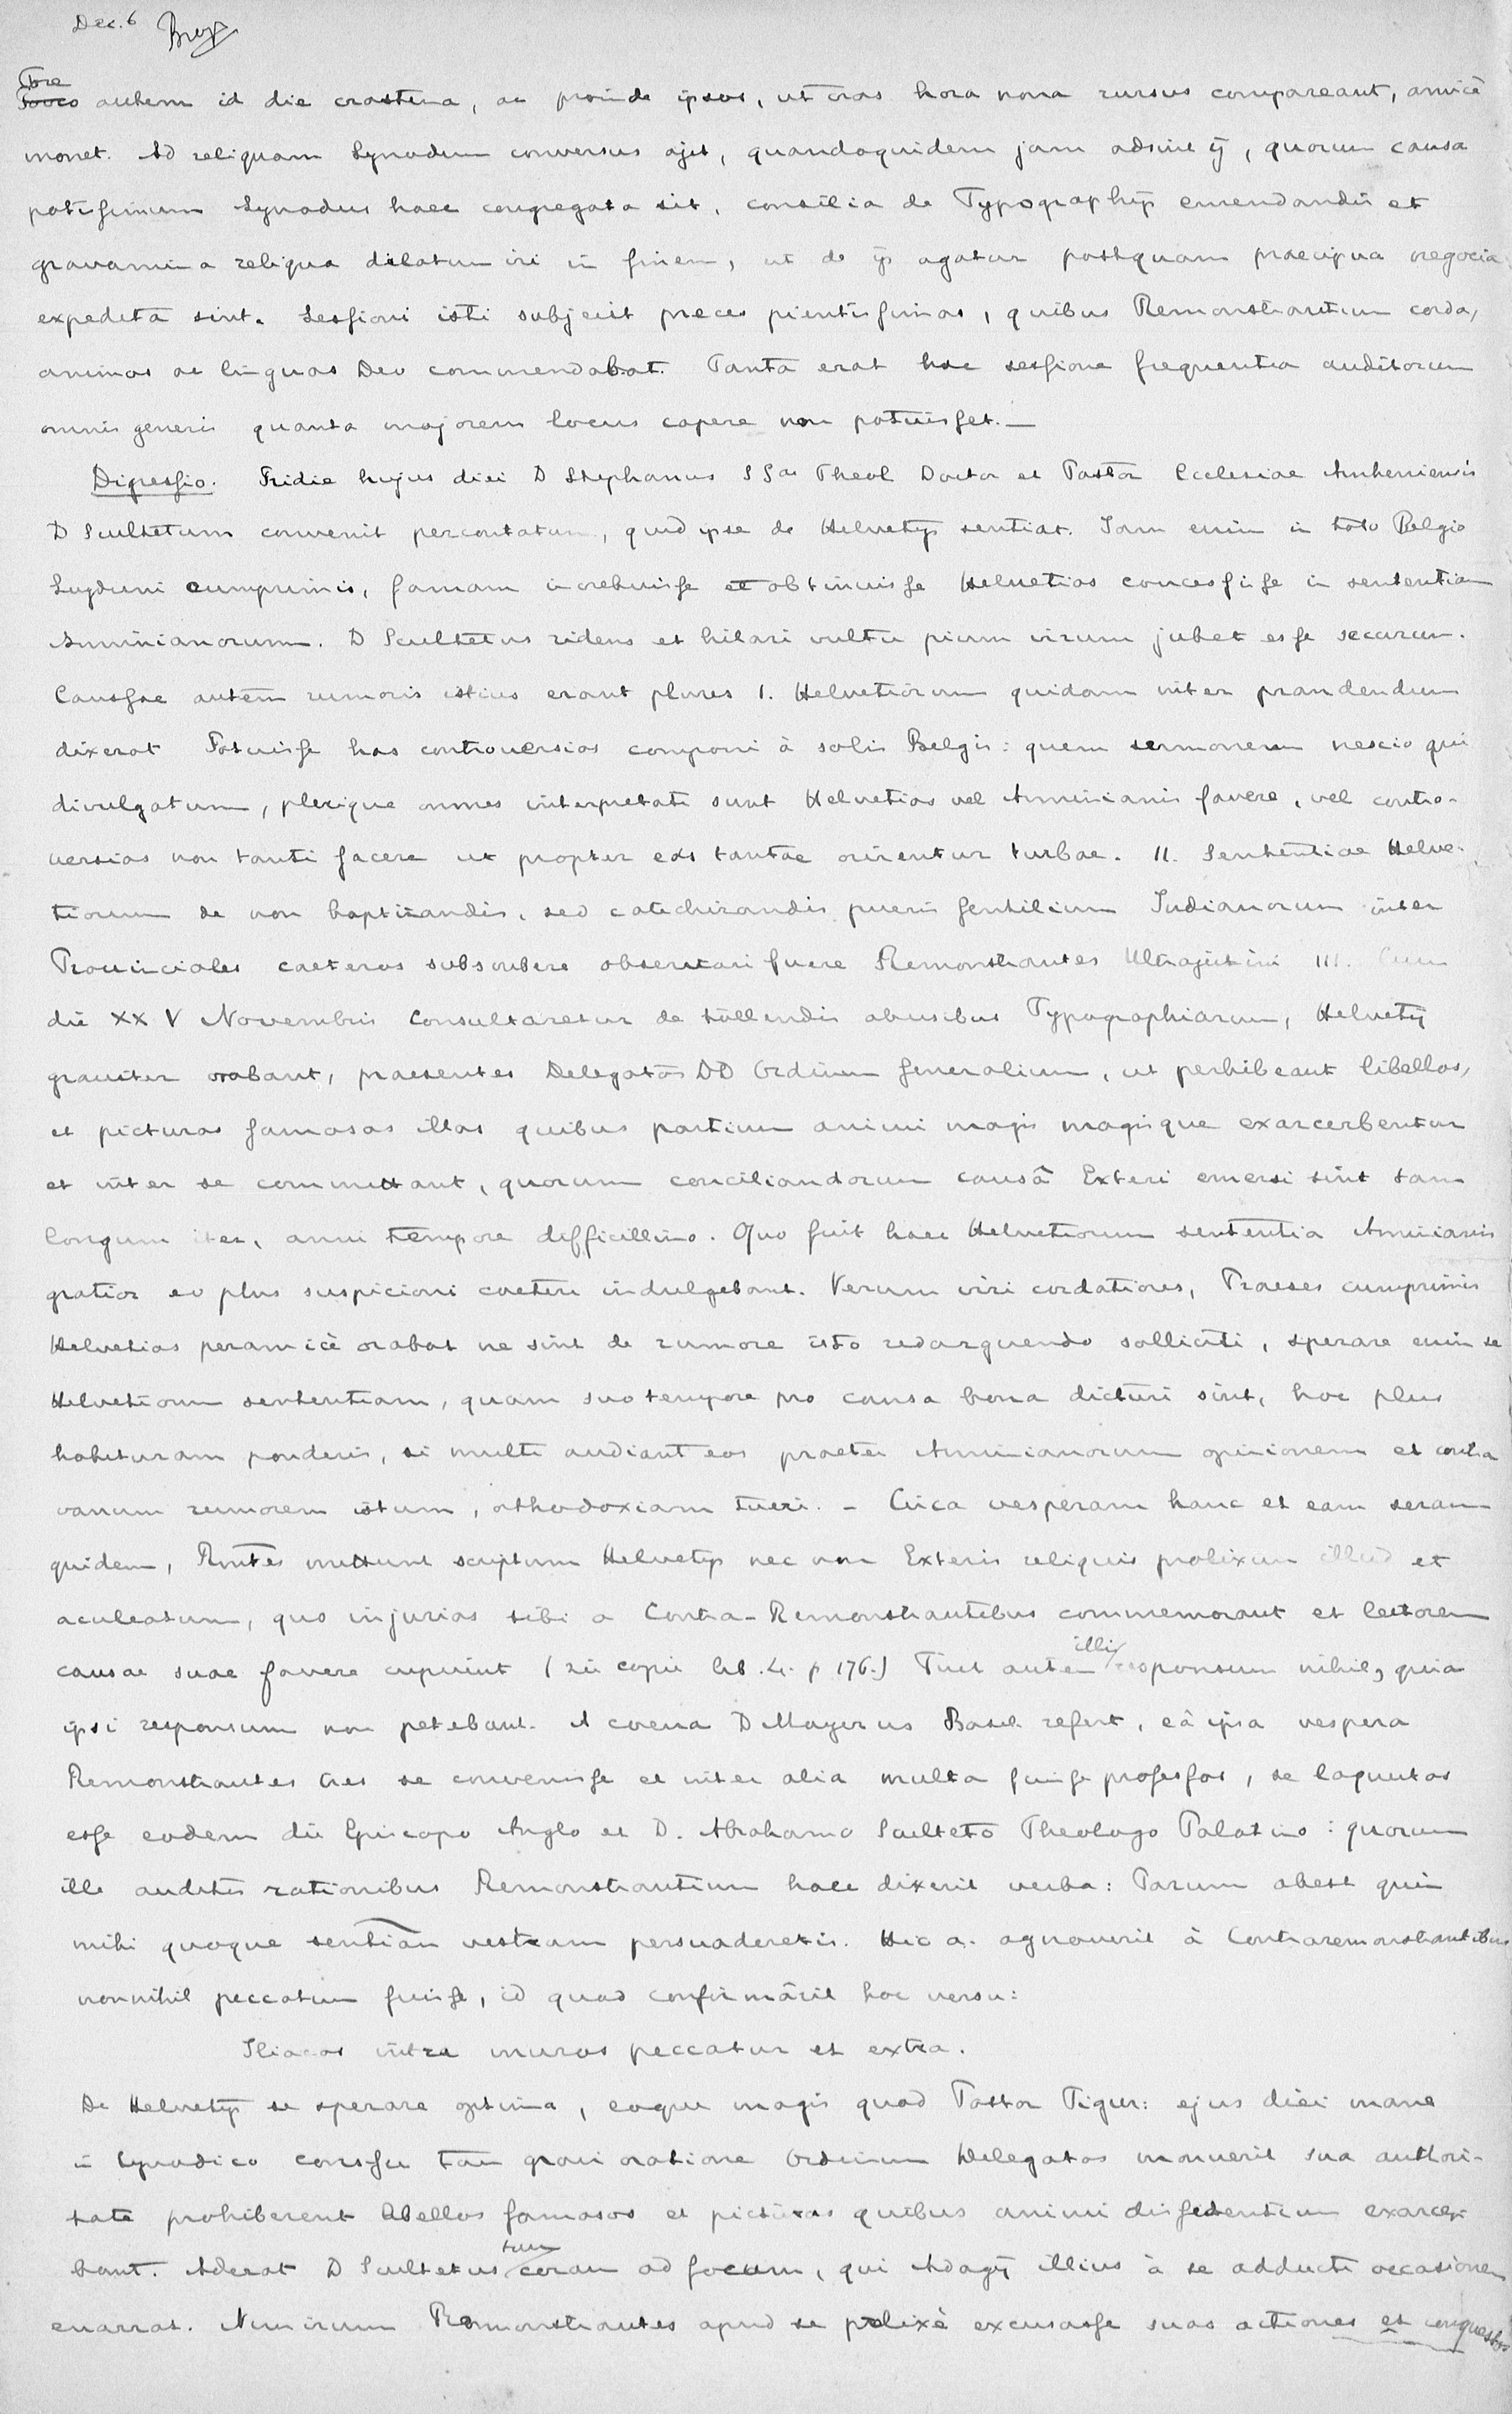 Dec. 6 Brey
Fore
autem id die crastina, ac proinde ipsos, ut cras hora nona rursus compareant, amicè
monet. Ad reliquam Synodum conversus ajit, quandoquidem jam adsint ij, quorum causa
potissimum Synodus haec congregata sit, consilia de Typographijs emendandis et
gravamina reliqua dilatum iri in finem, ut de ijs agatur postquam praecipua negocia
expedita sint. Sessioni isti subjecit preces pientissimas, quibus Remonstrantium corda,
animos ac linguas Deo commendabat. Tanta erat hac sessione frequentia auditorum
omnis generis quanta majorem locus capere non potuisset.—
Digressio. Pridie hujus diei D Stephanus SSae Theol Doctor et Pastor Ecclesiae Arnheniensis
D Scultetum convenit percontatum, quid ipse de Helvetijs sentiat. Jam enim in toto Belgio
Lugduni cumprimis, famam increbuisse et obtinuisse Helvetios concessisse in sententiam
Arminianorum. D Scultetus ridens et hilari vultu pium virum jubet esse securum.
Caussae autem rumoris istius erant plures I. Helvetiorum quidam inter prandendum
dixerat Potuisse has controversias componi à solis Belgis: quem sermonem nescio qui
divulgatum, plerique omnes interpretati sunt Helvetios vel Arminianis favere, vel contro-
versias non tanti facere ut propter eas tantae orirentur turbae. II. Sententiae Helve-
tiorum de non baptizandis, sed catechizandis pueris gentilium Indianorum inter
Provinciales caeteros subscribere observati fuere Remonstrantes Ultrajectini III. Cum
die XXV Novembris consultaretur de tollendis abusibus Typographiarum, Helvetij
graviter orabant, praesentes Delegatos DD Ordinum Generalium, ut perhibeant libellos,
et picturas famosas illas quibus partium animi magis magisque exarcerbentur
et inter se committant, quorum conciliandorum causâ Exteri emersi sint tam
longum iter, anni tempore difficillimo. Quo fuit haec Helvetiorum sententia Arminianis
gratior eo plus suspicioni caeteri indulgebant. Verum viri cordatiores, Praeses cumprimis
Helvetios peramicè orabat ne sint de rumore isto redarguendo solliciti, sperare enim se
Helvetiorum sententiam, quam suo tempore pro causa bona dicturi sint, hoc plus
habituram ponderis, si multi audiant eos praeter Arminianorum opinionem et contra
vanum rumorem istum, orthodoxiam tueri. - Circa vesperam hanc et eam seram
quidem, Rmtes mittunt scriptum Helvetijs nec non Exteris reliquis prolixum illud et
aculeatum, quo injurias sibi a Contra-Remonstrantibus commemorant et lectorem
causae suae favere cupiunt (zie copie lib. 4. p 176.) Fuit autem responsum nihil, quia
illis
ipsi responsum non petebant. A coena D Mayerus Basil. refert, eâ ipsa vespera
Remonstrantes tres se convenisse et inter alia multa fuisse professos, se loquutos
esse eodem die Episcopo Anglo et D. Abrahamo Sculteto Theologo Palatino: quorum
ille auditis rationibus Remonstrantium haec dixerit verba: Parum abest quin
mihi quoque sentiãm vestram persuaderetis. Hic a. agnoverit à Contraremonstrantibus
nonnihil peccatum fuisse, id quod confirmârit hoc versu:
Iliacos intra muros peccatur et extra.
De Helvetijs se sperare optima, eoque magis quod Pastor Tigur: ejus diei mane
in Synodico consessu tam gravi oratione Ordinum Delegatos monuerit sua authori-
tate prohiberent libellos famosos et picturas quibus animi dissidentium exarcer-
bant. Aderat D Scultetus coram ad focum, qui Adagij illius à se adducti occasionem
tum
enarrat. Nimirum Remonstrantes apud se prolixè excusasse suas actiones et conquestos